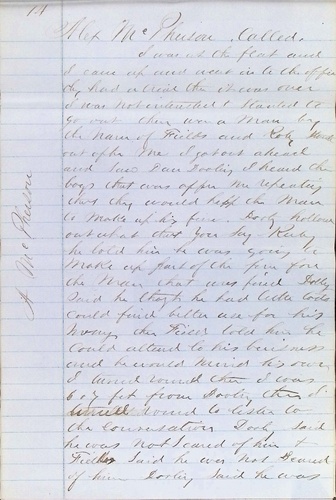 Alex McPherson Called.
I was at the flat and
I came up and went in to the office
they had a trial there it was over
I was not interested I started to
go out there was a Man by
the name of Fields and Dooly
out after Me I got out ahead
and saw Dan Dooley I heard the
boys that was after me repeating
that they would help the Man
to Make up his fine. Dooly hollowed
out what that you say
he told him he was going to
Make up part of the fine for
the Man that was fined Dooly
Said he thought he had better
could find better use for his
Money then Fields told him he
could attend to his business
and he would Mind his own
I turned round then I was
6 or 7 feet from Dooley then I
turned round to listen to
the Conversation Dooly said
he was not Scared of him &
Fields Said he was not Scared
of him Dooley Said he was
A McPherson